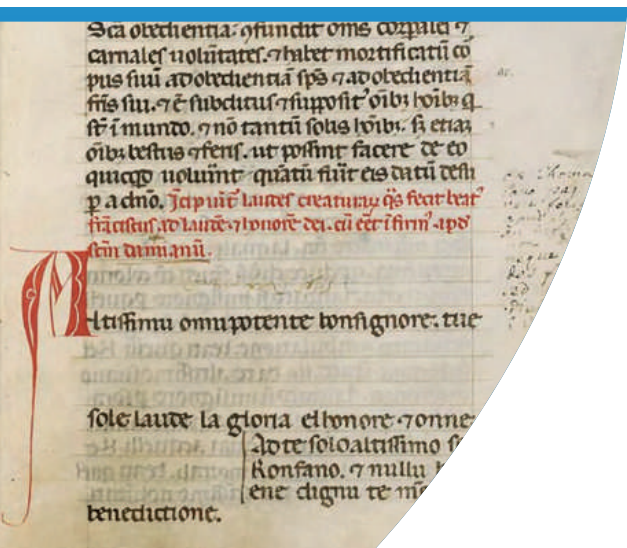 Sc̄a obedientia: ꝯfundit om̄s corꝑales ⁊
carnales uolūtates. ⁊ habet mortificatū cō
pus suū ad obedientiā sp̄s ⁊ ad obedientiā
fr̄is sui. ⁊ ē subditus ⁊ supposit᾽ oībꝫ hoībꝫ q̄
st̄ ī mundo. ⁊ nō tantū solis hoībꝫ. sꝫ etiaꝫ
oībꝫ bestiis ⁊ feris. ut possint facere de eo
quicqd uoluīnt quātū fūit eis datū desu
ꝑ a dn̄o. Īcipiūt laudes creaturaꝝ q̄s fecit beat᾽
frāciscus ad laudē ⁊ honorē dei. cū eēt īfirm᾽ apd᾽
sc̄m damianū.
Altissimu onnipotente bonsignore. tue
sole laude la gloria elhonore ⁊ onne
Ad te solo altissimo s
Konfano. ⁊ nullu h
ene dignu te
benedictione.